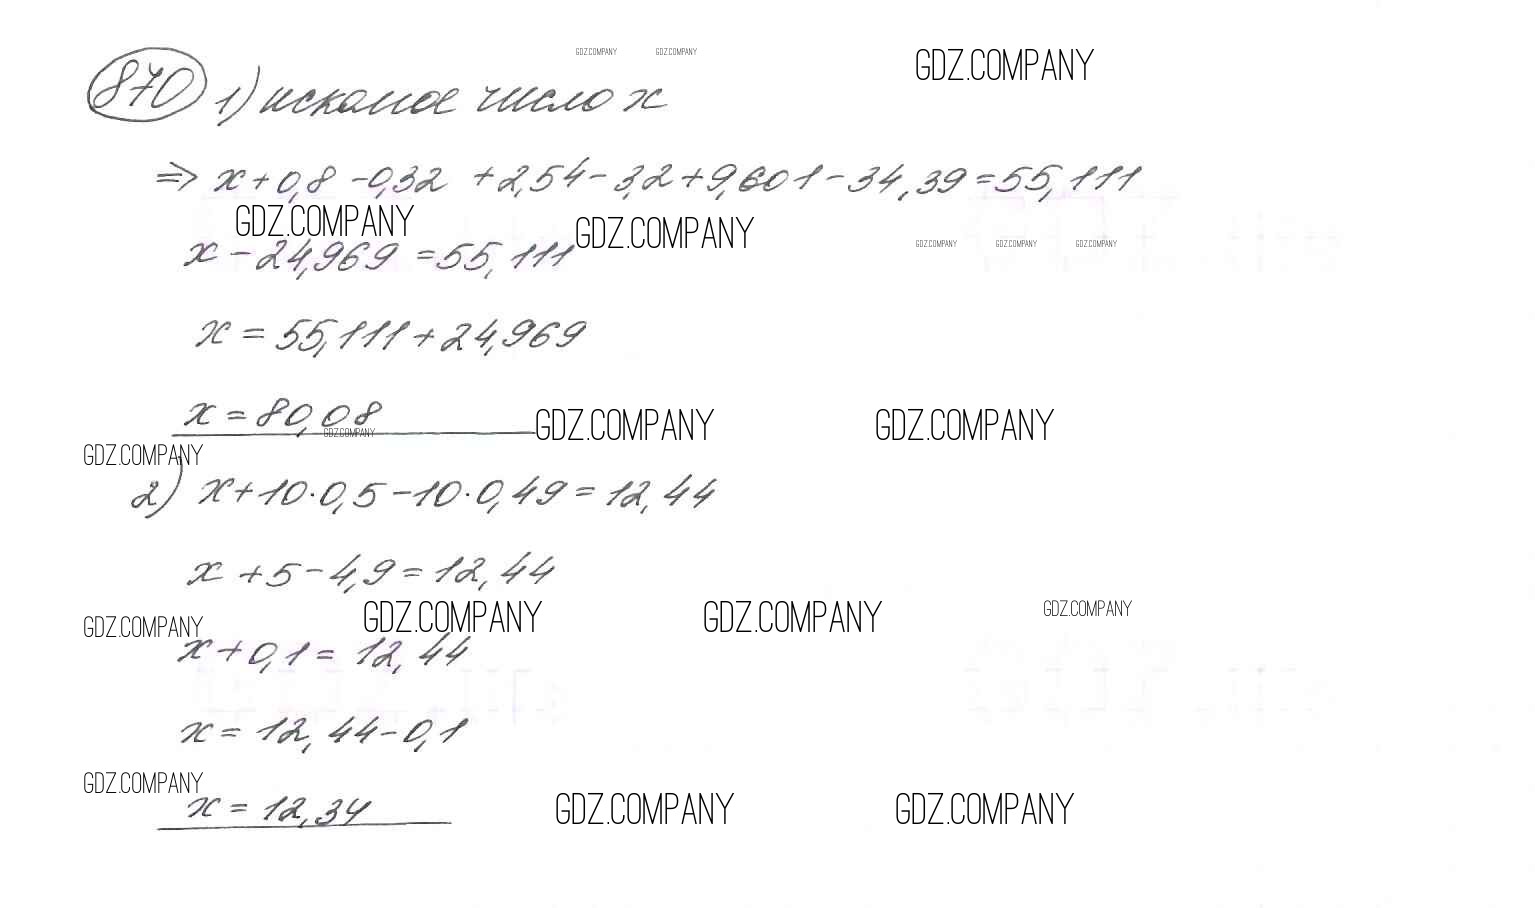 GDZ.COMPANY GDZ.COMPANY GDZ.COMPANY
870 1) искомое число x
⇒ x+0,8-0,32 +2,54-3,2+9,601-34,39=55,111
GDZ.COMPANY GDZ.COMPANY GDZ.COMPANY GDZ.COMPANY GDZ.COMPANY
x-24,969=55,111
x=55,111+24,969
x=80,08
GDZ.COMPANY GDZ.COMPANY GDZ.COMPANY
GDZ.COMPANY
2) x+10·0,5-10·0,49=12,44
x+5-4,9=12,44
GDZ.COMPANY GDZ.COMPANY GDZ.COMPANY GDZ.COMPANY
x+0,1=12,44
x=12,44-0,1
GDZ.COMPANY
x=12,34
GDZ.COMPANY GDZ.COMPANY